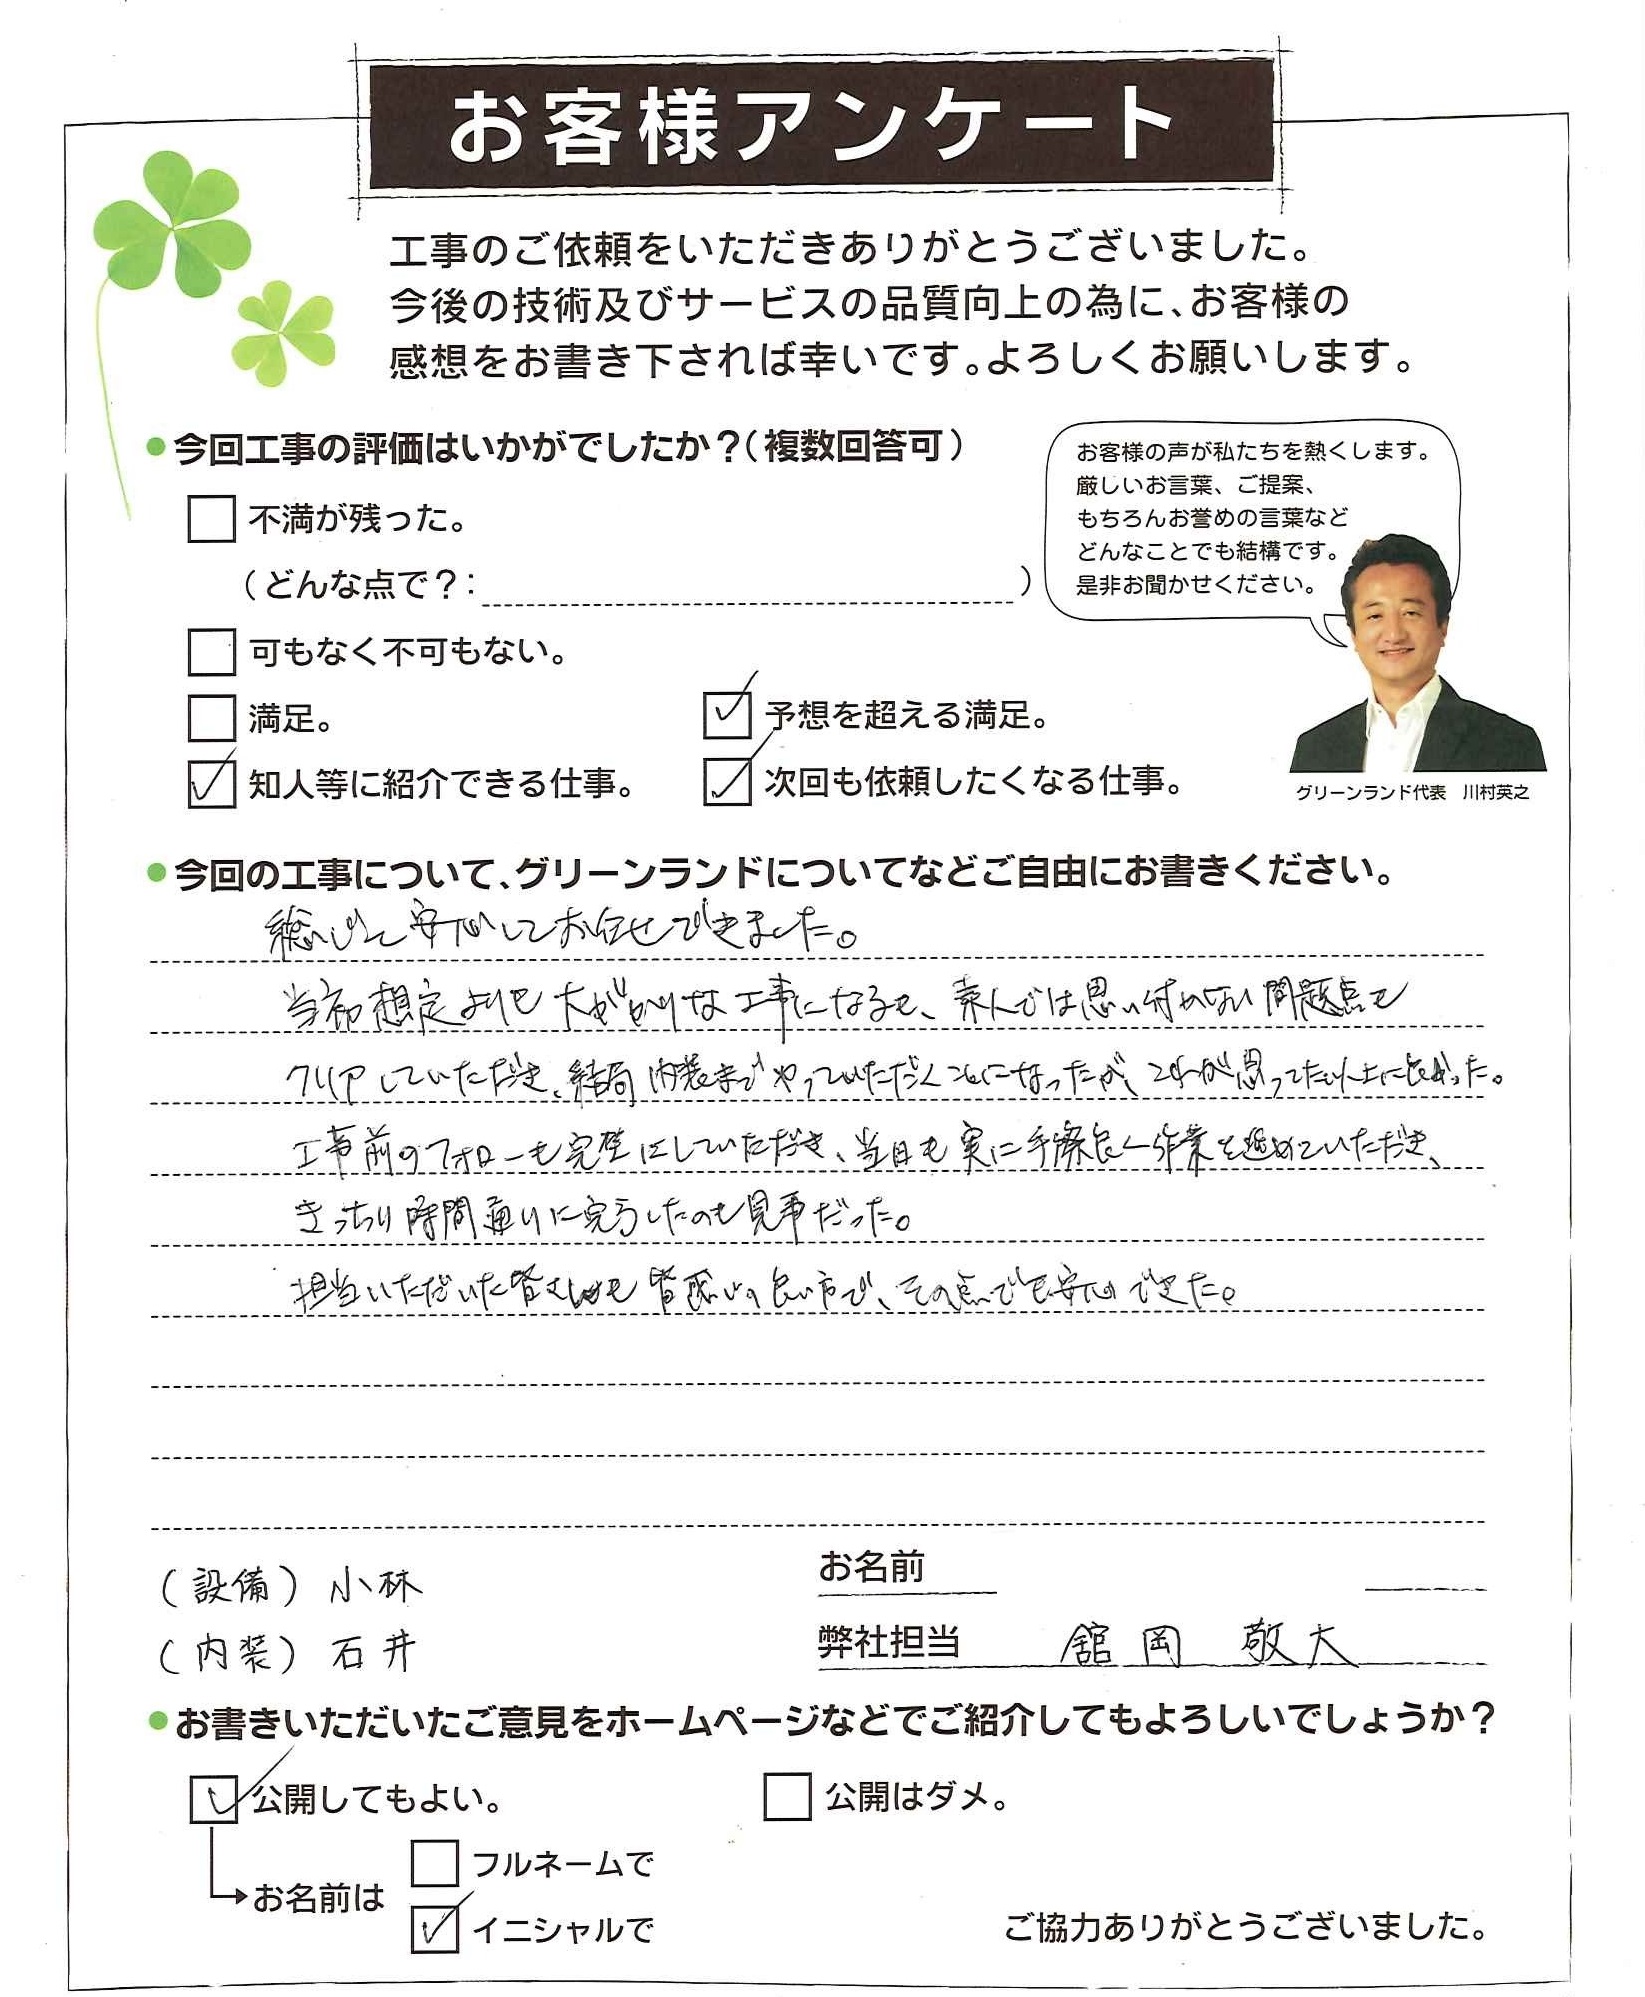 お客様アンケート
工事のご依頼をいただきありがとうございました。
今後の技術及びサービスの品質向上の為に、お客様の
感想をお書き下されば幸いです。よろしくお願いします。
●今回工事の評価はいかがでしたか？(複数回答可)
不満が残った。
(どんな点で？: )
可もなく不可もない。
満足。
予想を超える満足。
知人等に紹介できる仕事。
次回も依頼したくなる仕事。
お客様の声が私たちを熱くします。
厳しいお言葉、ご提案、
もちろんお誉めの言葉など
どんなことでも結構です。
是非お聞かせください。
グリーンランド代表　川村英之
●今回の工事について、グリーンランドについてなどご自由にお書きください。
総じて安心してお任せできました。
当初想定よりも大がかりな工事になるも、素人では思い付かない問題点も
クリアしていただき、結局内装までやっていただくことになったが、これが思ってた以上に良かった。
工事前のフォローも完璧にしていただき、当日も実に手際良く作業を進めていただき、
きっちり時間通りに完了したのも見事だった。
担当いただいた皆さんも皆感じの良い方で、その点でも安心できた。
(設備) 小林
(内装) 石井
お名前
弊社担当　舘岡　敬大
●お書きいただいたご意見をホームページなどでご紹介してもよろしいでしょうか？
公開してもよい。
公開はダメ。
お名前は
フルネームで
イニシャルで
ご協力ありがとうございました。